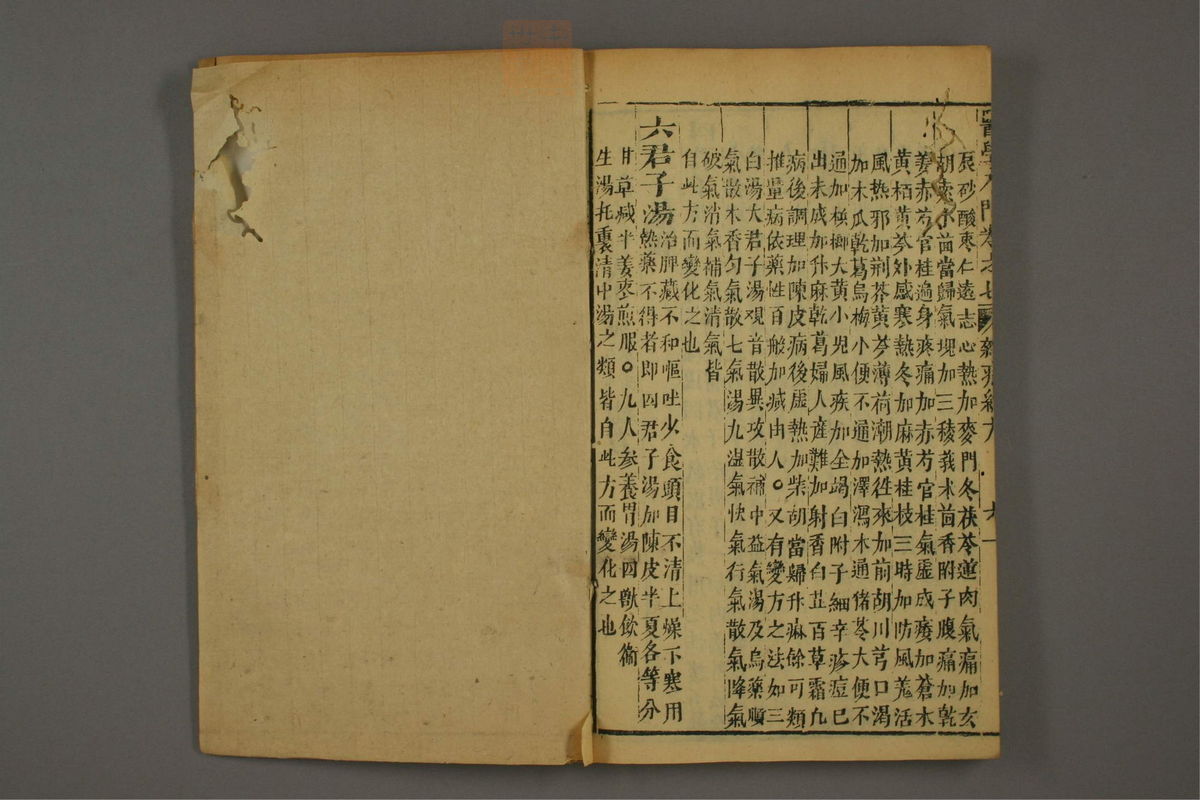 醫學入門卷之七 雜
辰砂酸棗仁遠志心熱加麥門冬茯苓蓮肉氣痛加玄
胡索小茴當歸氣塊加三稜莪朮茴香附子腹痛加乾
姜赤芍官桂遍身疼痛加赤芍官桂氣虛成痿加蒼木
黃栢黃芩外感寒熱冬加麻黃桂枝三時加防風羗活
風热邪加荆芥黃芩薄荷潮熱徃來加前胡川芎口渴
加木瓜乾葛烏梅小便不通加澤瀉木通猪苓大便不
通加梹榔大黃小児風疾加全蝎白附子細辛疹痘已
出未成加升麻乾葛婦人産難加射香白芷百草霜九
病後調理加陳皮病後虛熱加柴胡當歸升麻餘可類
推量病依藥性百般加减由人○又有變方之法如三
白湯大君子湯观音散異攻散補中益氣湯及烏藥順
氣散木香匀氣散七氣湯九温氣快氣行氣散氣降氣
破氣消氣補氣清氣皆
自此方而變化之也
六君子湯治脾藏不和嘔吐少食頭目不清上燥下寒用
熱藥不得者即四君子湯加陳皮半夏各等分
甘草减半姜枣煎服○九人参養胃湯四獸飲衛
生湯托裏清中湯之類皆自此方而變化之也